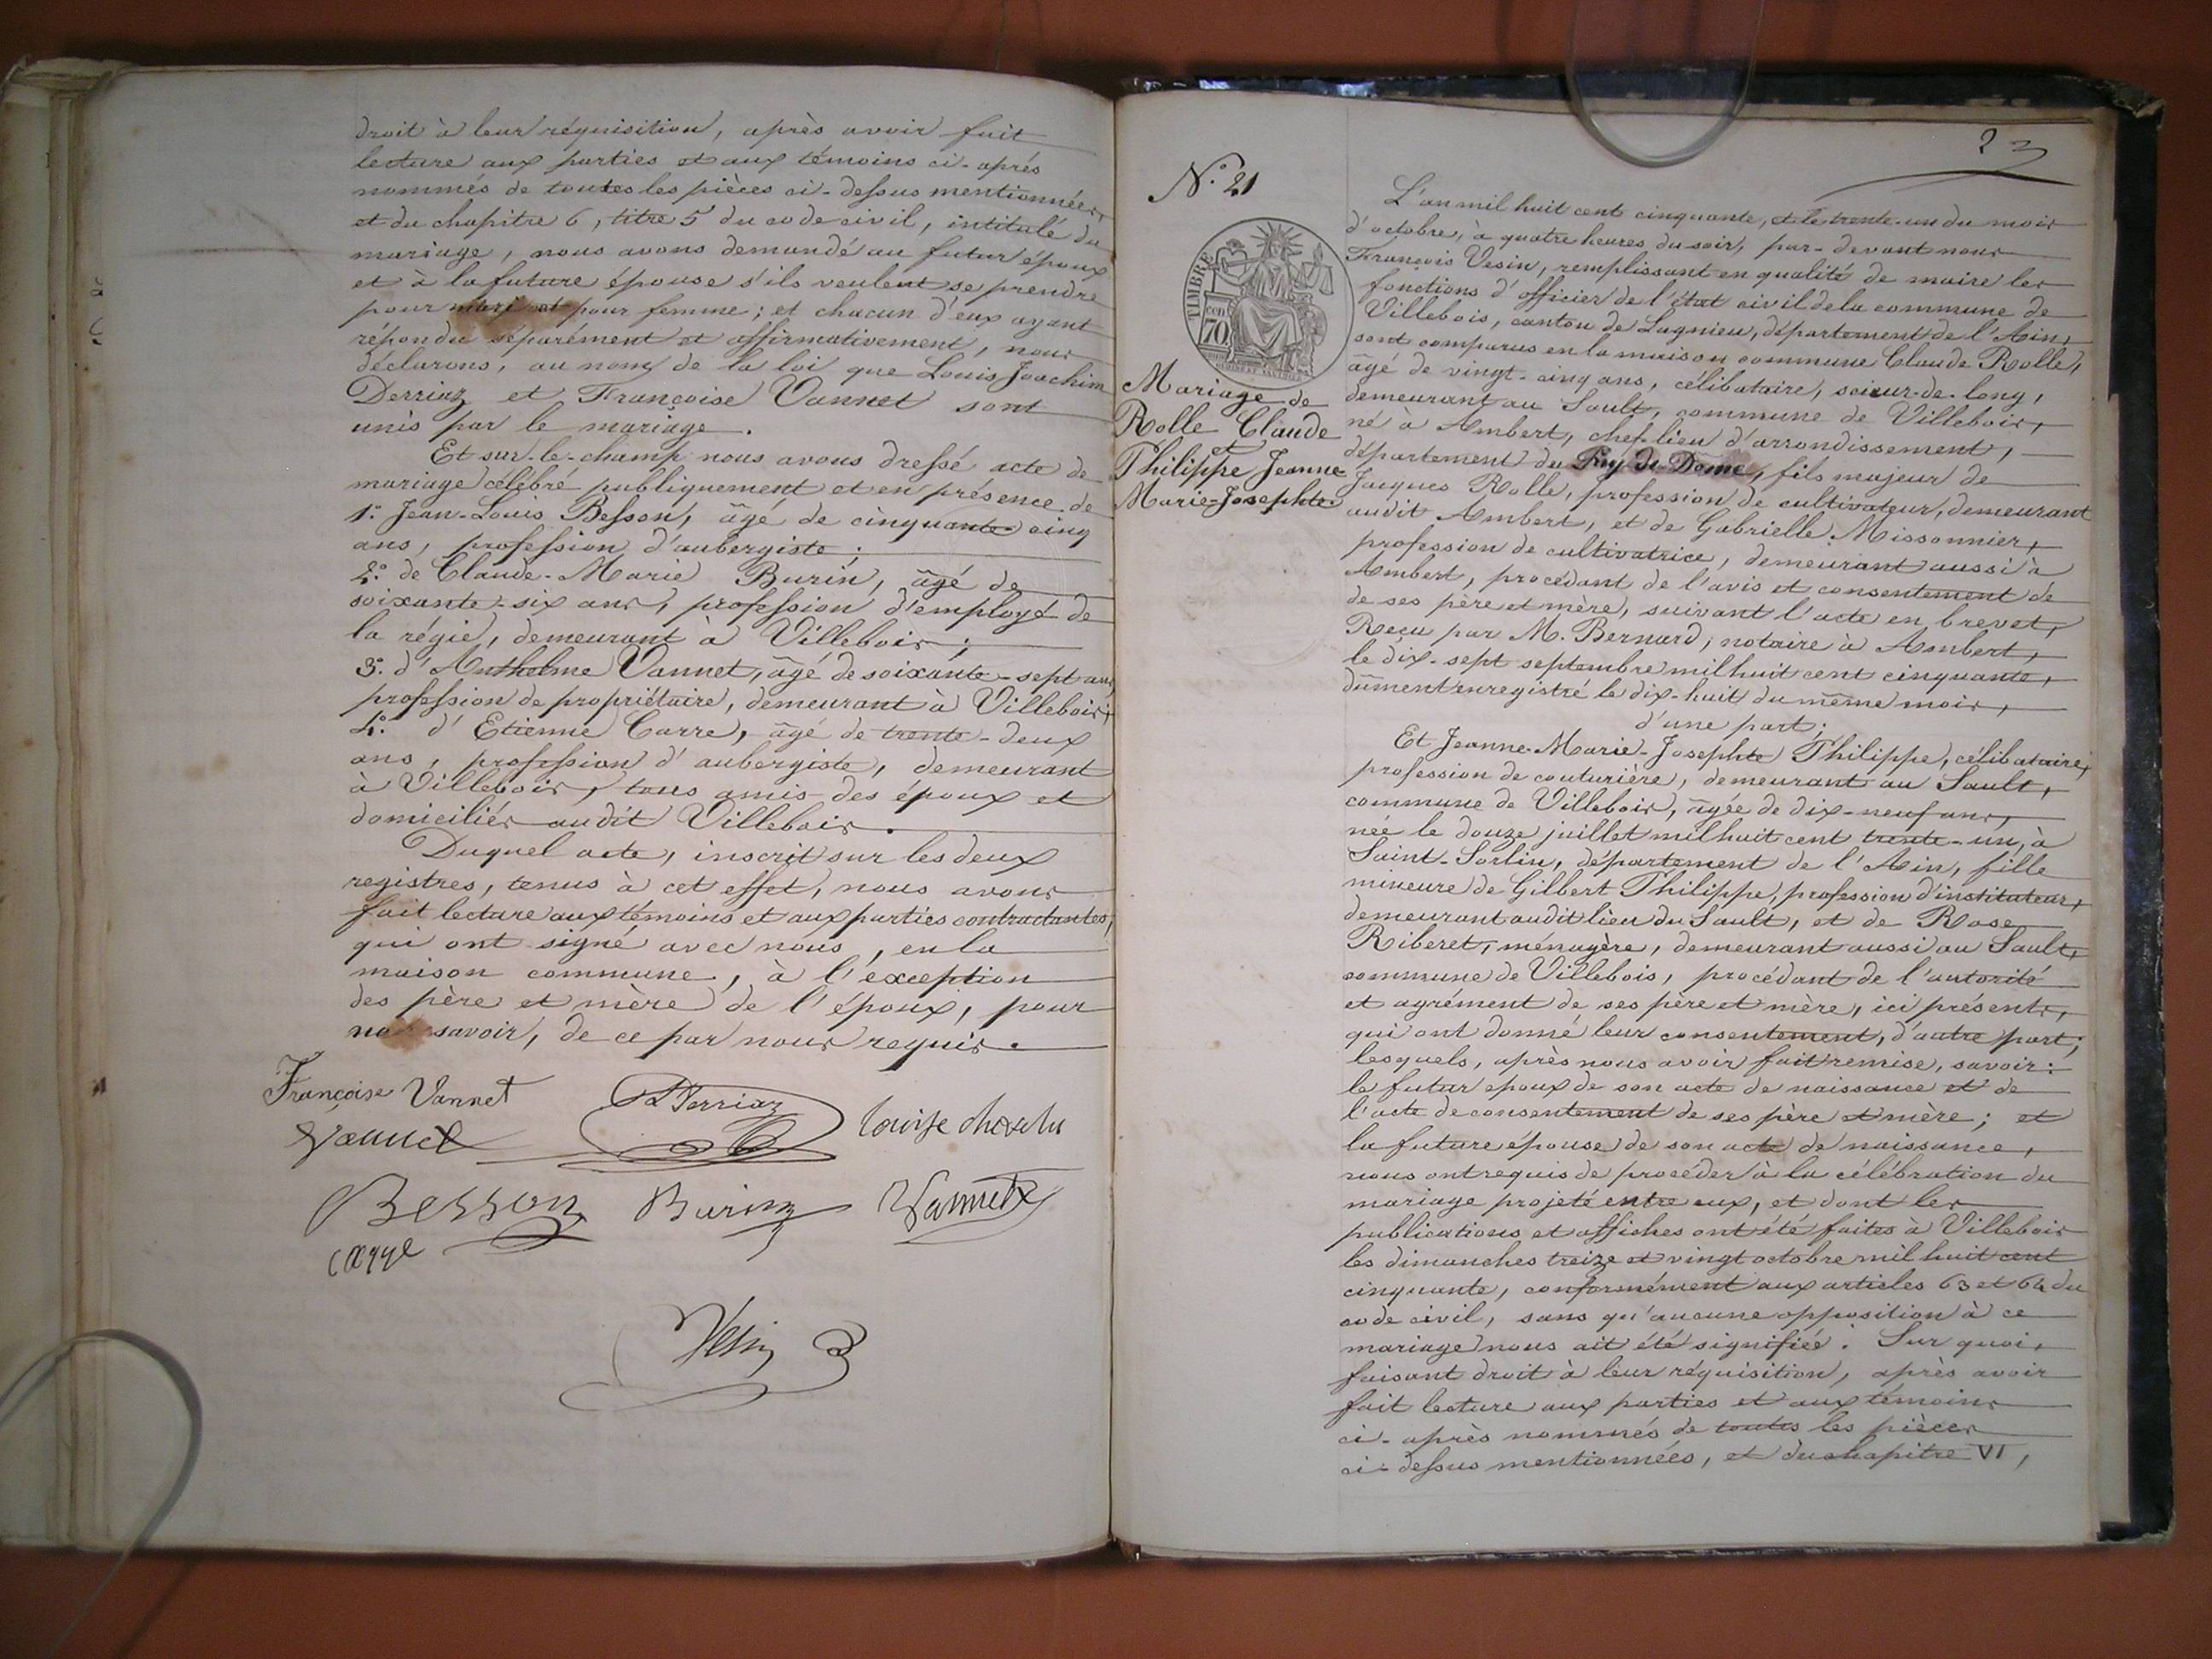 droit à leur réquisition, après avoir fait
lecture aux parties et aux témoins ci-après
nommés de toutes les pièces ci-dessus mentionnées,
et du chapitre 6, titre 5 du code civil, intitulé du
mariage, nous avons demandé au futur époux
et à la future épouse s'ils veulent se prendre
pour mari et pour femme; et chacun d'eux ayant
répondu séparément et affirmativement, nous
déclarons, au nom de la loi que Louis Joachim
Derriaz et Françoise Vannet sont
unis par le mariage.
Et sur-le-champ nous avons dressé acte de
mariage célébré publiquement et en présence de
1º Jean-Louis Besson, âgé de cinquante-cinq
ans, profession d'aubergiste;
2º de Claude-Marie Burin, âgé de
soixante-six ans, profession d'employé de
la régie, demeurant à Villebois;
3º d'Anthelme Vannet, âgé de soixante-sept ans,
profession de propriétaire, demeurant à Villebois;
4º d'Etienne Carre, âgé de trente-deux
ans, profession d'aubergiste, demeurant
à Villebois, tous amis des époux et
domiciliés audit Villebois.
Duquel acte, inscrit sur les deux
registres, tenus à cet effet, nous avons
fait lecture aux témoins et aux parties contractantes,
qui ont signé avec nous, en la
maison commune, à l'exception
des père et mère de l'époux, pour
ne savoir, de ce par nous requis.
Françoise Vannet
Derriaz
Louise
Vannet
Besson
Burin
Vannet
carre
Vesin
23
N.º 21
TIMBRE
70
Mariage de
Rolle Claude
et
Philippe Jeanne
Marie-Josephte
L'an mil huit cent cinquante, et le trente-un du mois
d'octobre, à quatre heures du soir, par-devant nous
François Vesin, remplissant en qualité de maire les
fonctions d'officier de l'état civil de la commune de
Villebois, canton de Lagnieu, département de l'Ain,
sont comparus en la maison commune Claude Rolle,
âgé de vingt-cinq ans, célibataire, scieur-de-long,
demeurant au Sault, commune de Villebois,
né à Ambert, chef-lieu d'arrondissement,
département du Puy-de-Dôme, fils majeur de
Jacques Rolle, profession de cultivateur, demeurant
audit Ambert, et de Gabrielle Missonnier,
profession de cultivatrice, demeurant aussi à
Ambert, procédant de l'avis et consentement de
de ses père et mère, suivant l'acte en brevet,
Reçu par M. Bernard, notaire à Ambert,
le dix-sept septembre mil huit cent cinquante,
dûment enregistré le dix-huit du même mois,
d'une part;
Et Jeanne-Marie-Josephte Philippe, célibataire,
profession de couturière, demeurant au Sault,
commune de Villebois, âgée de dix-neuf ans,
née le douze juillet mil huit cent trente-un, à
Saint-Sorlin, département de l'Ain, fille
mineure de Gilbert Philippe, profession d'instituteur,
demeurant audit lieu du Sault, et de Rose
Riberet, ménagère, demeurant aussi au Sault,
commune de Villebois, procédant de l'autorité
et agrément de ses père et mère, ici présents,
qui ont donné leur consentement, d'autre part;
lesquels, après nous avoir fait remise, savoir:
le futur epoux de son acte de naissance et de
l'acte de consentement de ses père et mère; et
la future épouse de son acte de naissance,
nous ont requis de procéder à la célébration du
mariage projeté entre eux, et dont les
publications et affiches ont été faites à Villebois
les dimanches treize et vingt octobre mil huit cent
cinquante, conformément aux articles 63 et 64 du
code civil, sans qu'aucune opposition à ce
mariage nous ait été signifiée. Sur quoi,
faisant droit à leur réquisition, après avoir
fait lecture aux parties et aux témoins
ci-après nommés de toutes les pièces
ci-dessus mentionnées, et du chapitre VI,